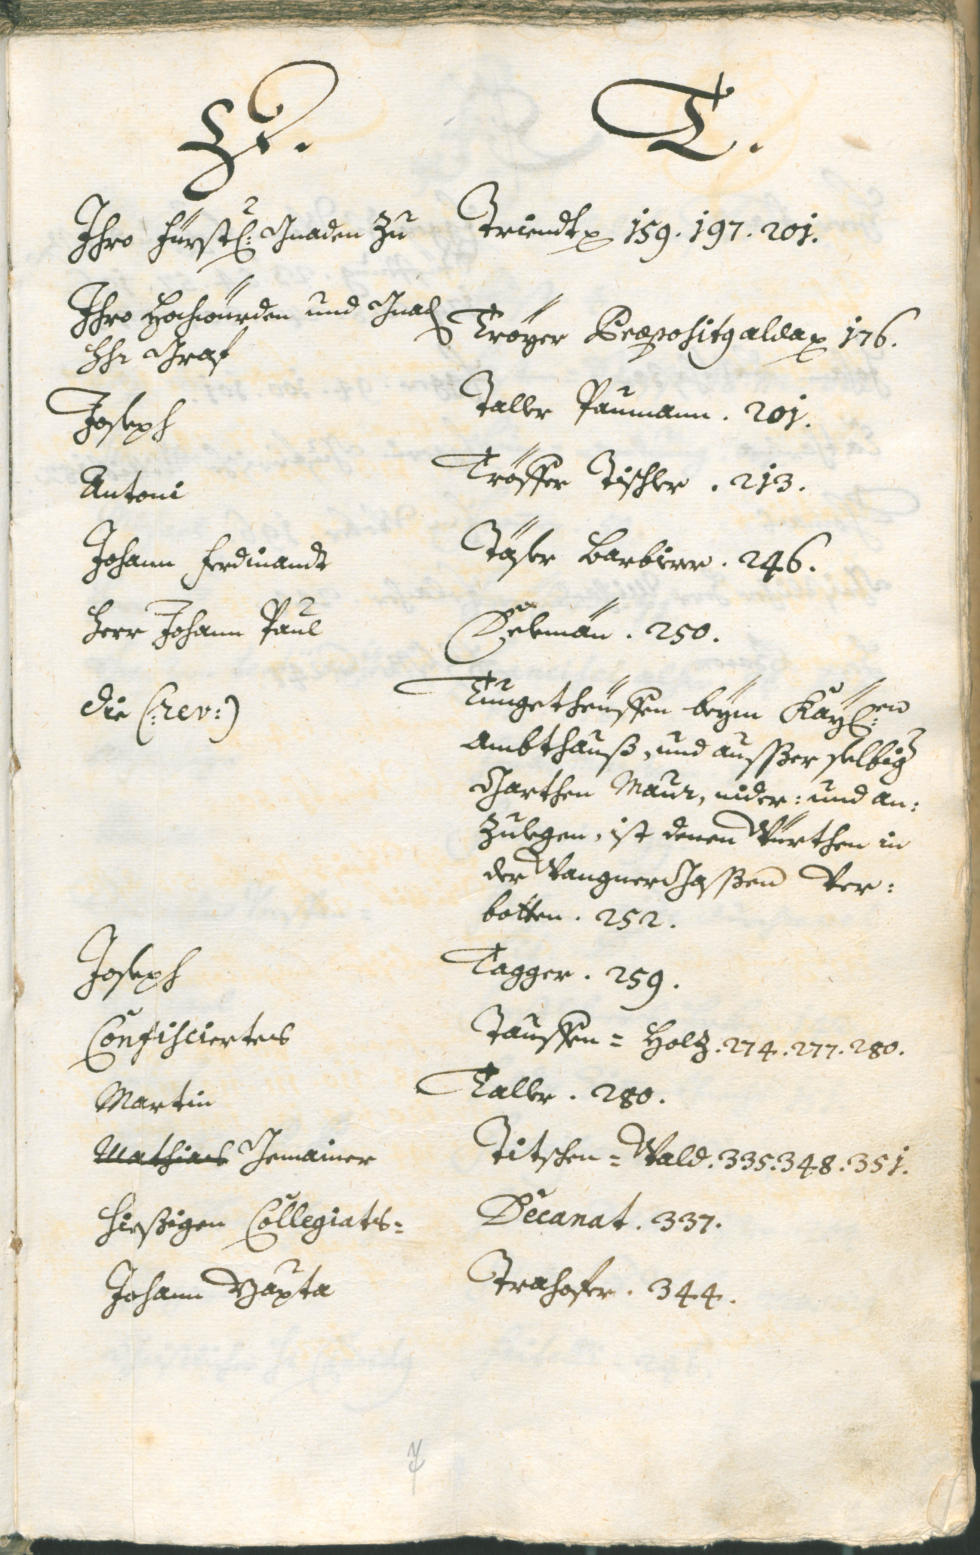 T.
Ihro Fürstl: Gnaden Zu Triendt 159. 197. 201.
Ihro Hochwürden und Gnad
Graf Tröyer Praepositg 176.
Joseph Taller Paumann. 201.
Antoni Tröffer Tischler. 213.
Johann Ferdinandt Täser Barbirer. 246.
Herr Johann Paul 250.
die (:rev:) Tungetheüffen beÿm Kaÿl:en
Ambthauß, und ausßer selbig
Garthen Maur, nider: und an:
Zulegen, ist denen Würthen in
der Wangner Gaßen Ver:
botten. 252.
Joseph Tagger. 259.
Confisciertes Tauffen= Holz. 274. 277. 280.
Martin Taller. 280.
Mathias Gemainer Titschen= Wald. 335. 348. 351.
hießigen Collegiats= Decanat. 337.
Johann Bapta Trahofer. 344.